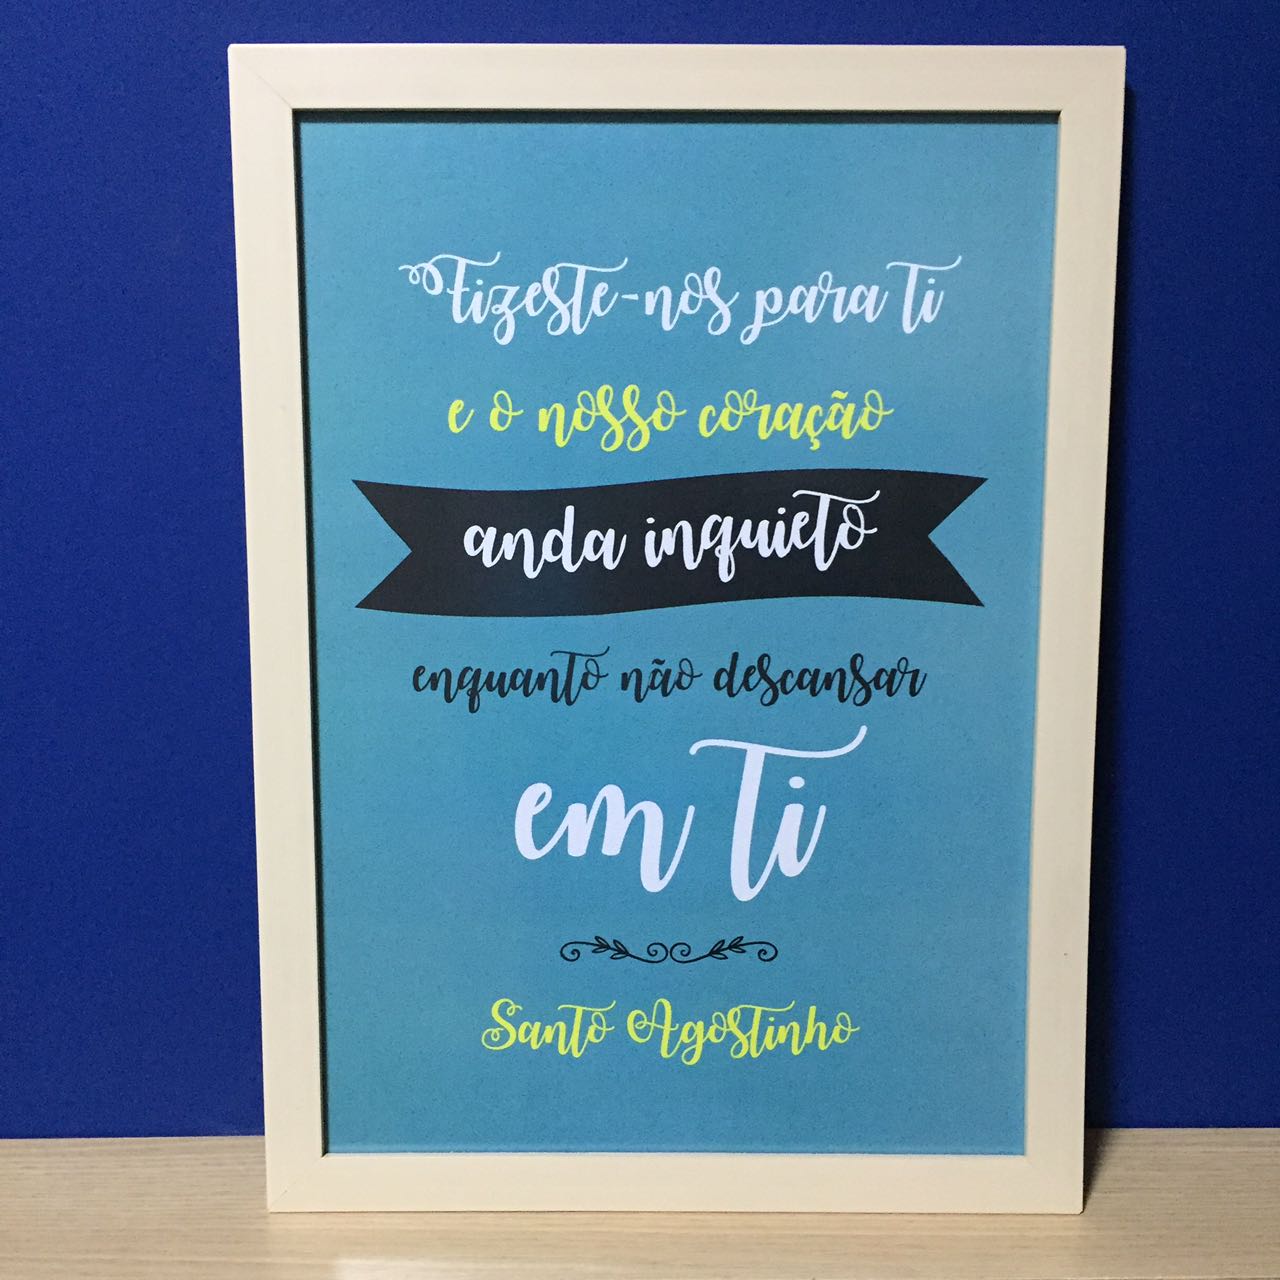 Fizeste-nos para ti
e o nosso coração
anda inquieto
enquanto não descansar
em Ti
Santo Agostinho